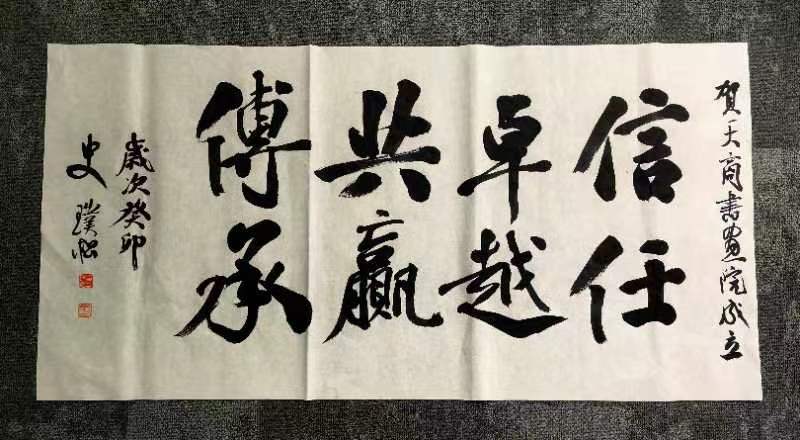 賀天商書畫院成立
信任
卓越
共贏
傳承
歲次癸卯
史璞松